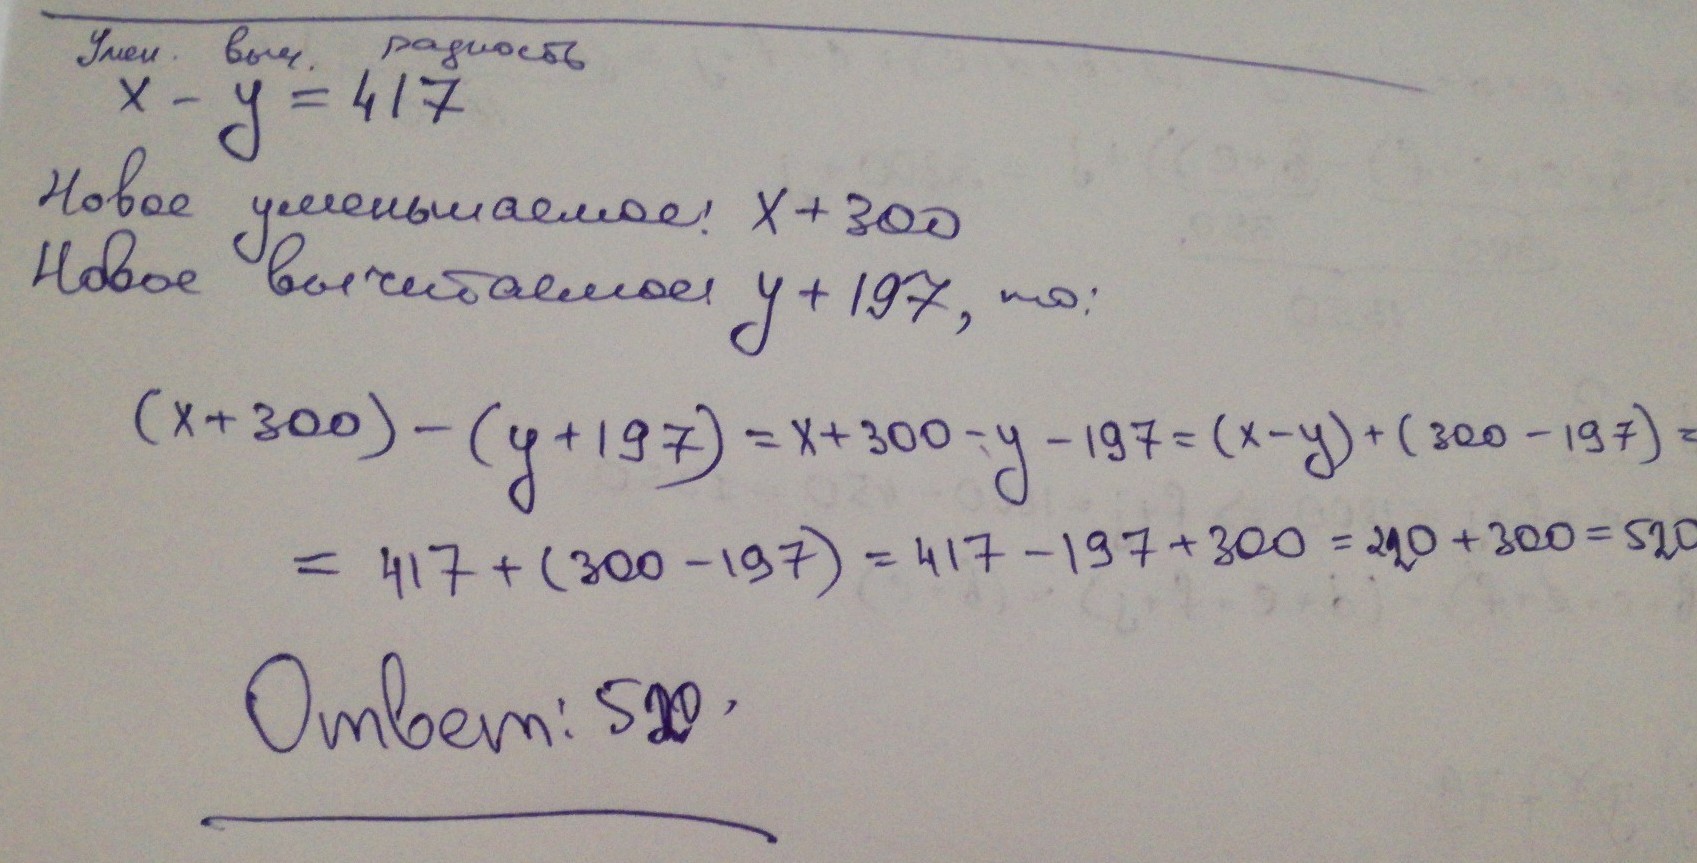 Умен. выч. разность
x - y = 417
Новое уменьшаемое: x + 300
Новое вычитаемое: y + 197, то:
(x + 300) - (y + 197) = x + 300 - y - 197 = (x - y) + (300 - 197) =
= 417 + (300 - 197) = 417 - 197 + 300 = 220 + 300 = 520
Ответ: 520.